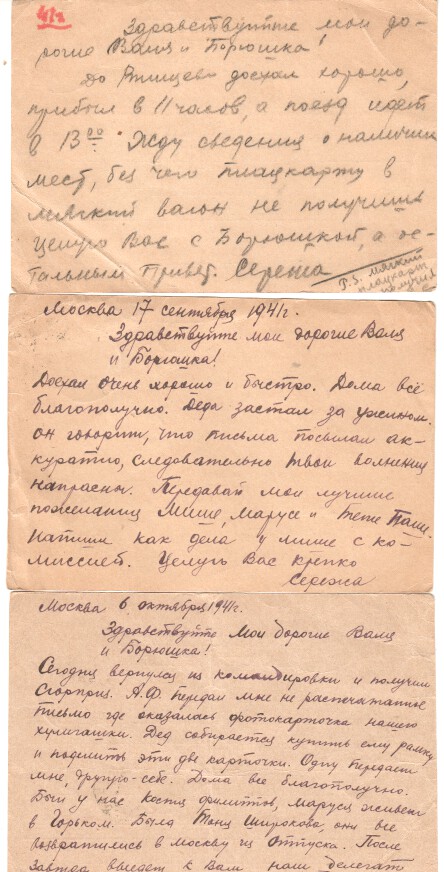 41г
Здравствуйте мои до-
рогие Валя и Борюшка!
До Ртищево доехал хорошо,
прибыл в 11 часов, а поезд идет
в 13⁰⁰. Жду сведения о наличии
мест, без чего плацкарту в
мягкий вагон не получишь
Целую Вас с Борюшкой, а ос-
тальным привет. Сережа
P.S. мягкий
плацкарт
получил
Москва 17 сентября 1941г.
Здравствуйте мои дорогие Валя
и Борюшка!
Доехал очень хорошо и быстро. Дома всё
благополучно. Деда застал за ужином.
он говорит, что письма посылал ак-
куратно, следовательно твои волнения
напрасны. Передавай мои лучшие
пожелания Мише, Марусе и тете Паше.
Напиши как дела у Миши с ко-
миссией. Целую Вас крепко
Сережа
Москва 6 октября 1941г.
Здравствуйте Мои дорогие Валя
и Борюшка!
Сегодня вернулся из командировки и получил
Сюрприз. А.Ф. передал мне не распечатанное
письмо где оказалась фотокарточка нашего
хулигашки. Дед собирается купить ему рамку
и поделить эти две карточки. Одну передаст
мне, другую-себе. Дома все благополучно.
Был у нас Костя Филиппов, Маруся живет
в Горьком. Была Тоня Широкова, они все
возвратились в Москву из Отпуска. После
завтра выедет к Вам наш делегат